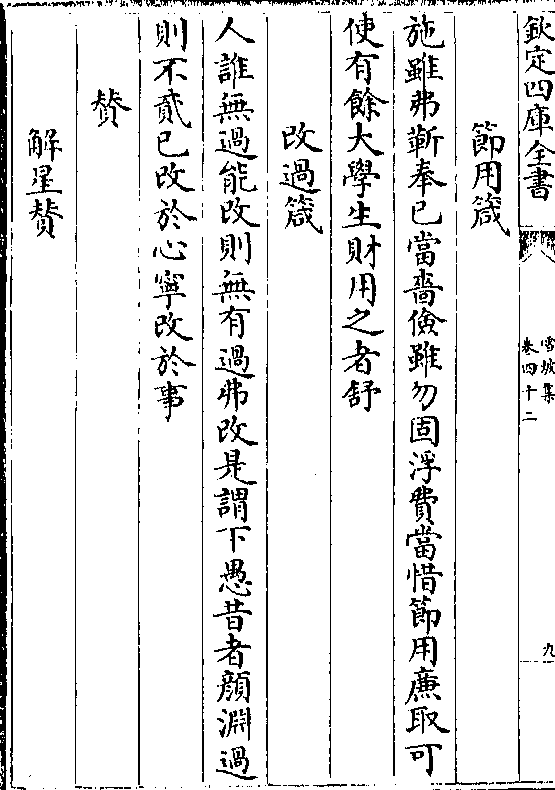 欽定四庫全書
雪坡集
卷四十二
九
節用箴
施雖弗靳奉已當嗇儉雖勿固浮費當惜節用㢘取可
使有餘大學生財用之者舒
改過箴
人誰無過能改則無有過弗改是謂下愚昔者顔淵過
則不貳已改於心寧改於事
賛
解星賛